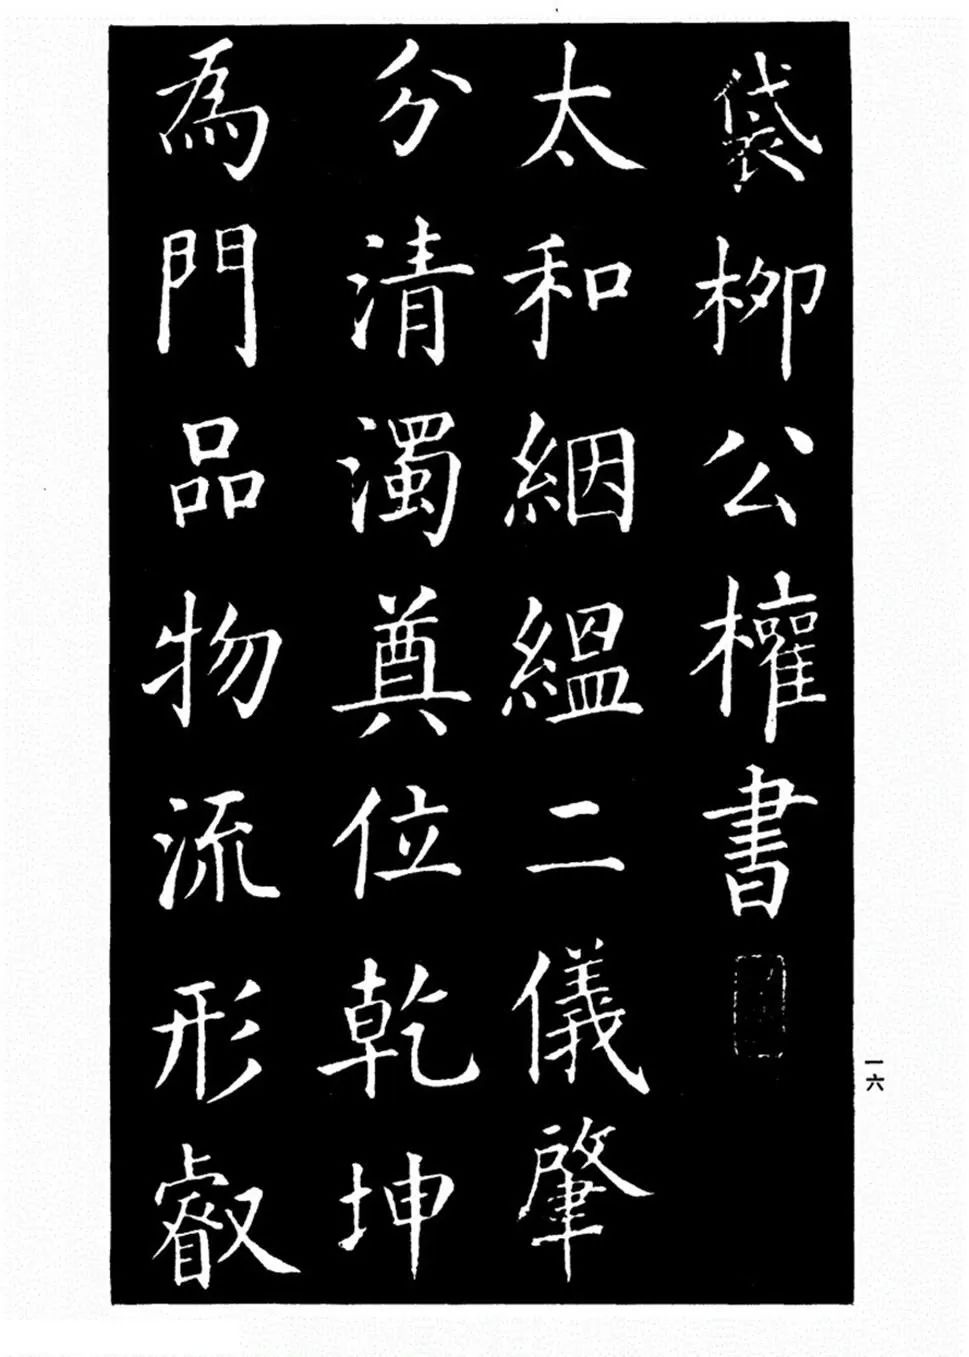 袋柳公權書
太和絪縕二儀肇
分清濁奠位乾坤
為門品物流形叡
一六